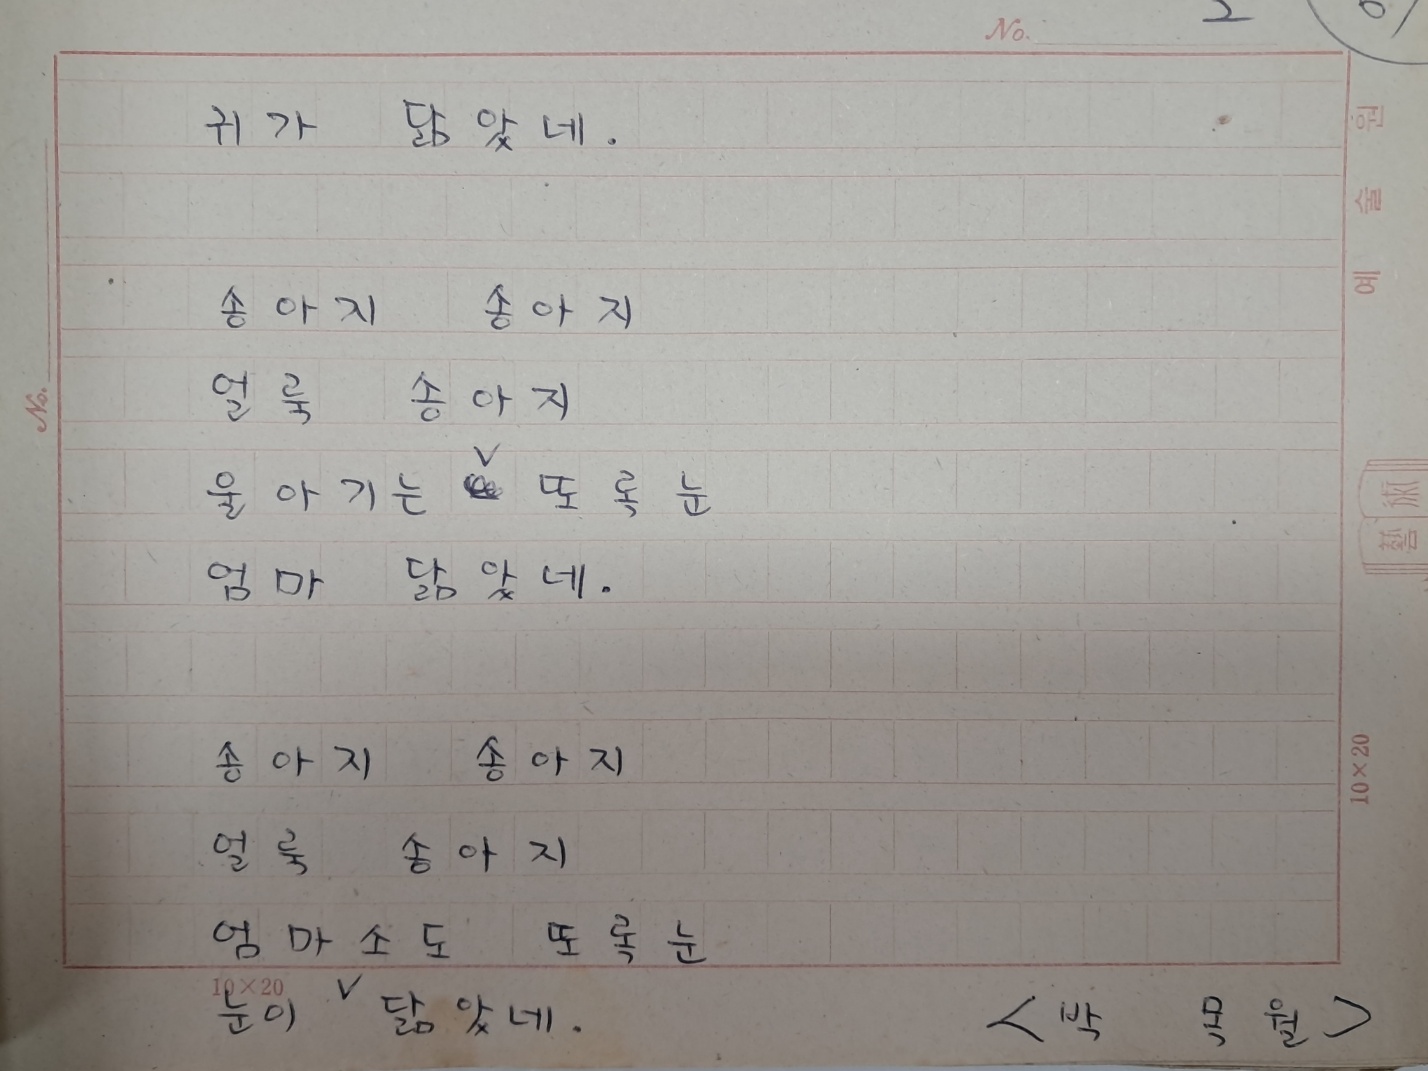 No. 2
귀가 닮았네.
송아지 송아지
얼룩 송아지
울아기는 또록눈
엄마 닮았네.
송아지 송아지
얼룩 송아지
엄마소도 또록눈
눈이 닮았네.
<박 목월>
10×20
10×20
No.
예술원
藝術